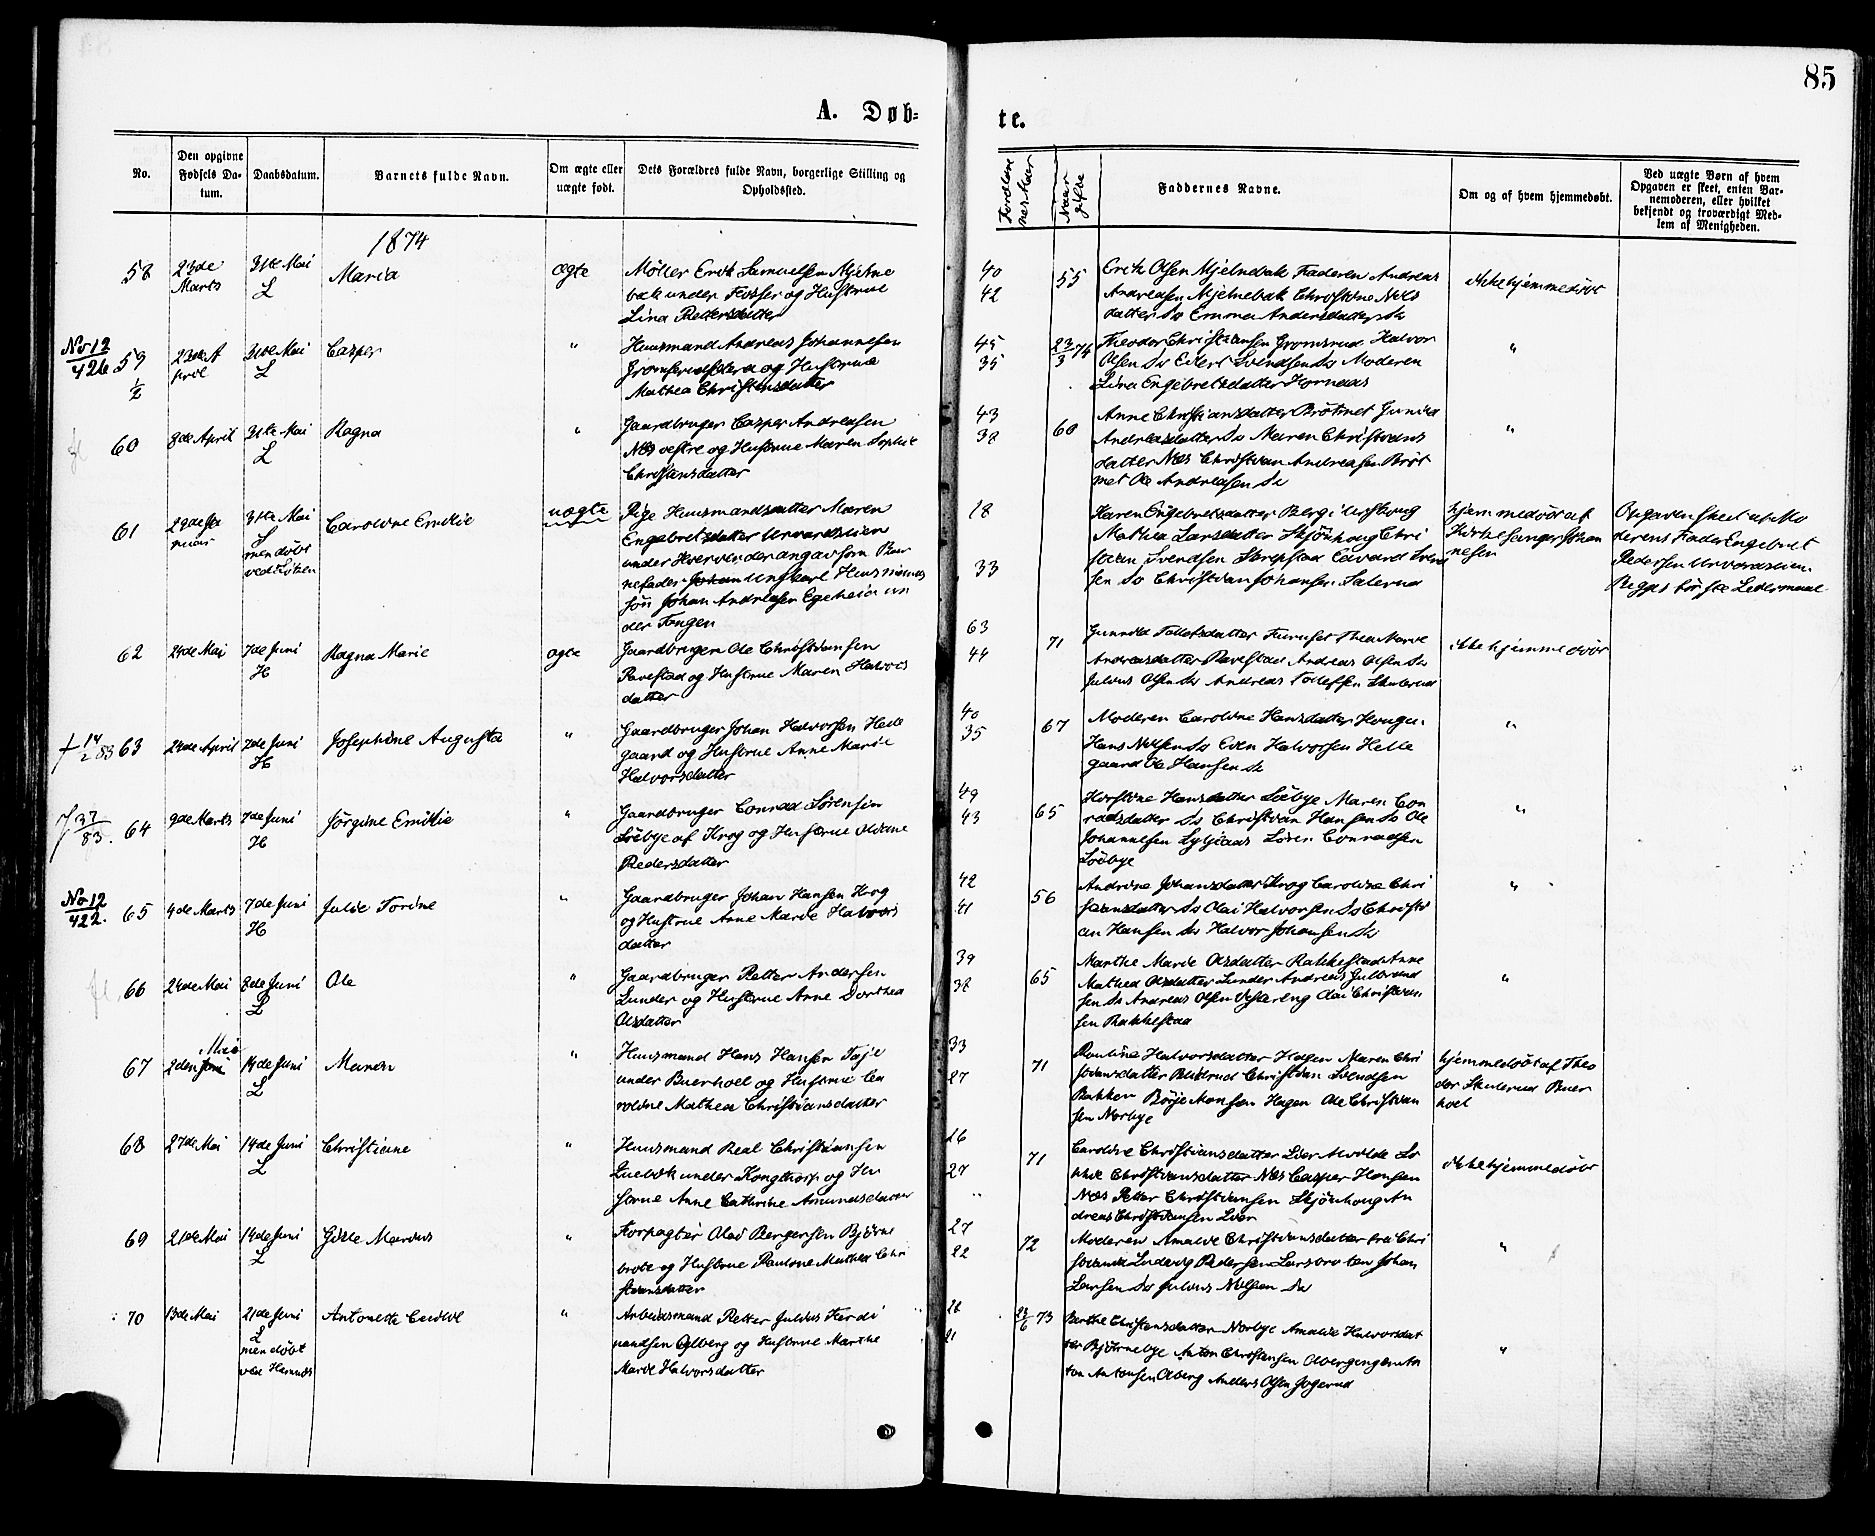 85
A. Døb-
te.
No.
Den opgivne
Fødsels Da-
tum.
Daabsdatum.
Barnets fulde Navn.
Om ægte eller
uægte født.
Dets Forældres fulde Navn, borgerlige Stilling og
Opholdssted.
Naar
gifte
Faddernes Navne.
Om og af hvem hjemmedøbt.
Ved uægte Børn af hvem
Opgaven er skeet, enten Bar-
nemoderen, eller hvilket
bekjendt og troværdigt Med-
lem af Menigheden.
1874
58
23de
Marts
31te Mai
L
Maria
ægte
Møller Erik Samuelsen Mjelne
bæk under Fosser og Hustrue
Lina Pettersdatter
40
42
55
Erik Olsen Mjelnebæk Faderen Andreas
Andreasen Mjelnebæk Christine Nils
datter Do Emma Andersdatter Do
ikke hjemmedøbt
No 12
426
59
1/2
23de A
pril
31te Mai
L
Casper
"
Huusmand Andreas Johannesen
og Hustrue
Mathea Christensdatter
45
35
23/3 74
Theodor Christiansen Gromsrud Halvor
Olsen Do Edert Svendsen Do Moderen
Lina Engebretsdatter Hornaas
"
60
8de April
31te Mai
L
Ragna
"
Gaardbruger Casper Andreasen
Næs vestre og Hustrue Maren Sophie
Christensdatter
43
38
60
Anne Christiansdatter Brøtmet Gunild
Andreasdatter Do Maren Christians
datter Næs Christian Andreasen Brøt
met Ole Andreasen Do
"
61
29de Ja
nuar
31te Mai
L
men døbt
ved
Caroline Emilie
uægte
Pige Huusmandsdatter Maren
Engebretsdatter
under som Bar
nefader Ungkarl Huusmands
søn Johan Andreasen Egeheia un
der Tangen
18
33
Karen Engebretsdatter Berg
Mathea Larsdatter Skjønhaug Chri
stian Svendsen Edvard Svend
sen Do Christian Johansen
hjemmedøbt af
Kirkesanger Johan
nesen
Opgaven skeet af Mo
derens Fader Engebret
Pedersen
Begges første Leiermaal
62
24de Mai
7de Juni
H
Ragna Marie
ægte
Gaardbrugen Ole Christiansen
Ravestad og Hustrue Maren Halvors
datter
63
44
71
Gunild Marie
Andreasdatter Ravestad Andreas Olsen Do
Julius Olsen Do Andreas Skulerud
ikke hjemmedøbt
+ 14/2 83
63
24de April
7de Juni
H
Josephine Augusta
"
Gaardbruger Johan Halvorsen Helle
gaard og Hustrue Anne Marie
Halvorsdatter
40
35
67
Moderen Caroline Hansdatter
Hans Nilsen Do Even Halvorsen Helle
gaard Ole Hansen Do
"
37/83.
64
9de Marts
7de Juni
H
Jørgine Emilie
"
Gaardbruger Conrad Sørensen
Løebye af Krog og Hustrue Oldine
Pedersdatter
49
43
65
Kirstine Hansdatter Løebye Maren Con
radsdatter Do Christian Hansen Do Ole
Johannesen Søren Conradsen
Løebye
"
No 12
422.
65
4de Marts
7de Juni
H
Julie Torine
"
Gaardbruger Johan Hansen Krog
og Hustrue Anne Marie Halvors
datter
42
41
56
Andrine Johansdatter Krog Caroline Chri
stiansdatter Do Olai Halvorsen Do Christi
an Hansen Do Halvor Johansen Do
"
66
24de Mai
8de Juni
L
Ole
"
Gaardbruger Petter Andersen
Lunder og Hustrue Anne Dorthea
Olsdatter
39
38
65
Marthe Marie Olsdatter Rakkestad Anne
Mathea Olsdatter Lunder Andreas Gulbrand
sen Do Andreas Olsen Vestereng Olai Christian
sen Rakkestad
"
67
Mai
2den Juni
14de Juni
L
Maren
"
Huusmand Hans Hansen Toje
under Buerhoel og Hustrue Ca
roline Mathea Christiansdatter
33
27
71
Pauline Halvorsdatter Hagen Maren Chri
stiansdatter Christian Svendsen
Bakken Børje Monsen Hagen Ole Christian
sen Norbye
hjemmedøbt af Theo
dor Skulerud Buer
hoel
68
27de Mai
14de Juni
L
Christiane
"
Huusmand Christiansen
under Kongthorp og Hu
strue Anne Cathrine Amundsdatter
26
27
71
Caroline Christiansdatter Lier So
phie Christiansdatter Næs Casper Hansen
Næs Petter Christiansen Skjønhaug An
dreas Christiansen Lier
ikke hjemmedøbt
69
21de Mai
14de Juni
L
Gisle Marius
"
Forpagter Olai Bergersen Bjørne
brote og Hustrue Pauline Mathea Chri
stiansdatter
27
22
72
Moderen Amalie Christiansdatter fra Chri
stiania Ludvig Pedersen Larsbraaten Johan
Larsen Do Julius Nilsen Do
"
70
13de Mai
21de Juni
L
men døbt
ved Hemnæs
Antonette
"
Arbeidsmand Petter Julius Ferdi
nandsen Ogberg og Hustrue Marthe
Marie Halvorsdatter
28
21
23/6 73
Berthe Christensdatter Norbye Amalie Halvorsdat
ter Bjørnebye Anton Christensen
ton Antonsen Anders Olsen
"